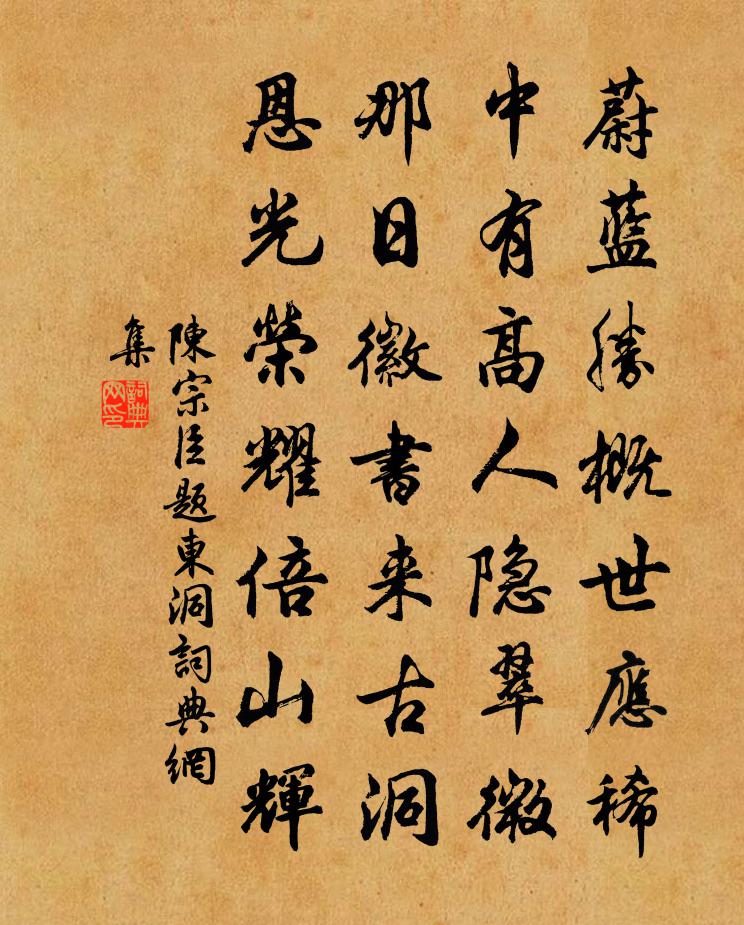 蔚藍勝概世應稀
中有高人隐翠微
那日徽書来古洞
恩光榮耀倍山輝
陳宗臣題東洞詞典網
集
詞典網印